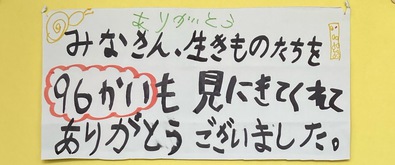 ありがとう
みなさん、生きものたちを
96かいも見にきてくれて
ありがとうございました。